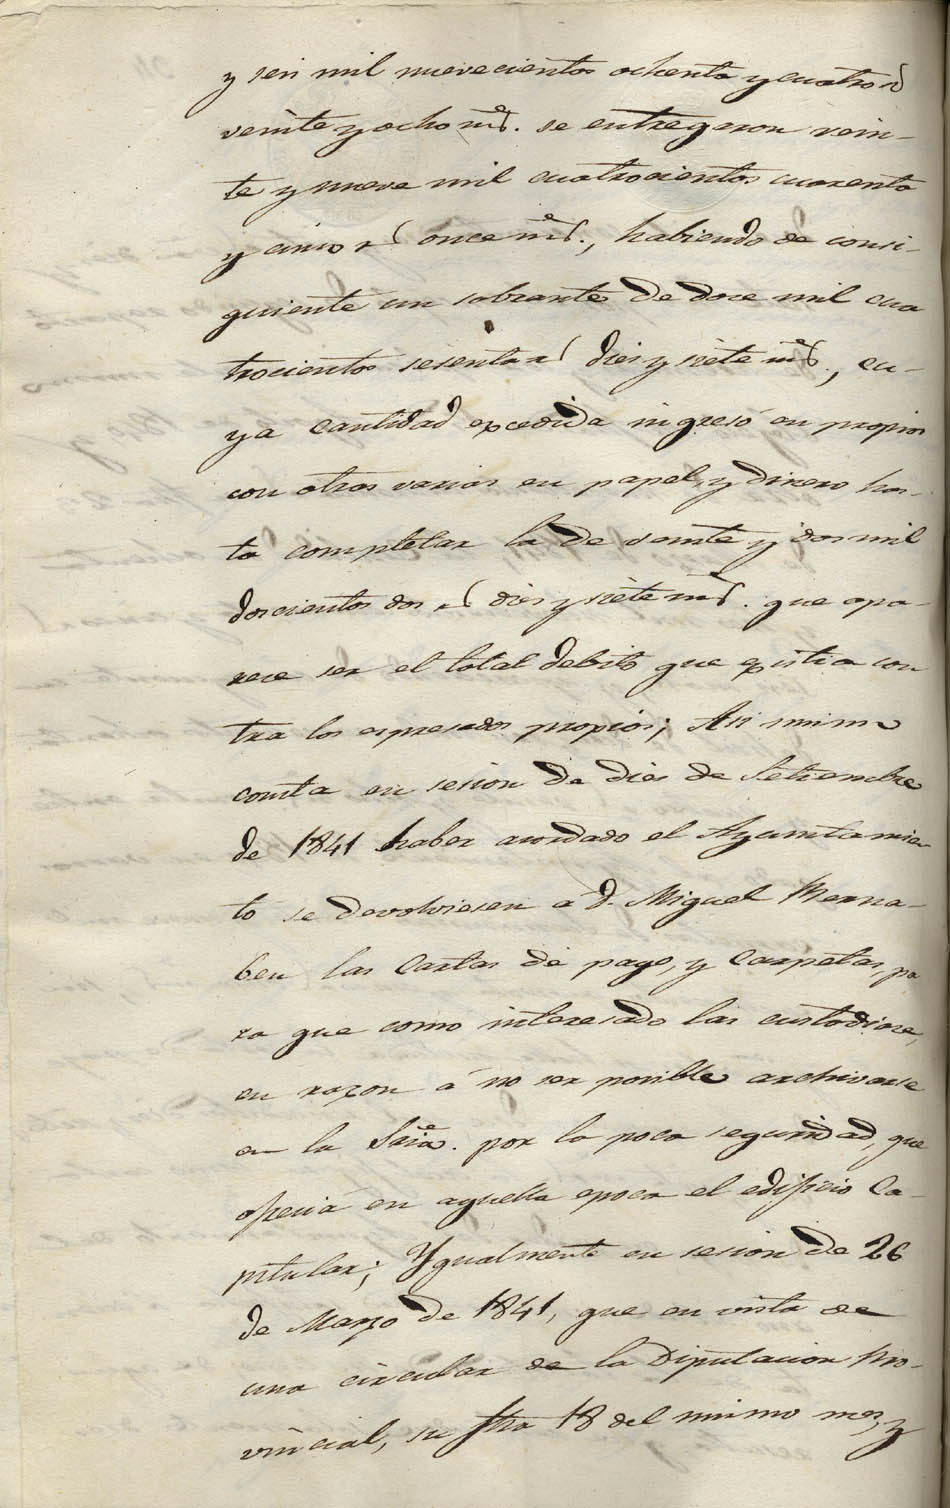 y seis mil nuevecientos ochenta y cuatro rˢ
veinte y ocho mˢ. se entregaron vein-
te y nueve mil cuatrocientos cuarenta
y cinco rˢ once mˢ., habiendo de consi-
guiente un sobrante de doce mil cua
trocientos sesenta rˢ diez y siete mˢ., cu-
ya cantidad excedida ingresó en propios
con otras varias en papel, y dinero has-
ta completar la de veinte y dos mil
doscientos dos rˢ diez y siete mˢ. que apa-
rece ser el total debito que existia con
tra los espresados propios; Asi mismo
consta en sesion de diez de Setiembre
de 1841 haber acordado el Ayuntamien
to se devolviesen á d. Miguel Berna-
beu las Cartas de pago, y Carpetas, pa
ra que como interesado las custodiase,
en razon á no ser posible archivarse
en la Sriaˢ. por la poca seguridad, que
ofrecia en aquella epoca el edificio Ca-
pitular; Ygualmente en sesion de 26
de Marzo de 1841, que en vista de
una circular de la Diputacion Pro-
vincial, su fha 18 del mismo mes, y